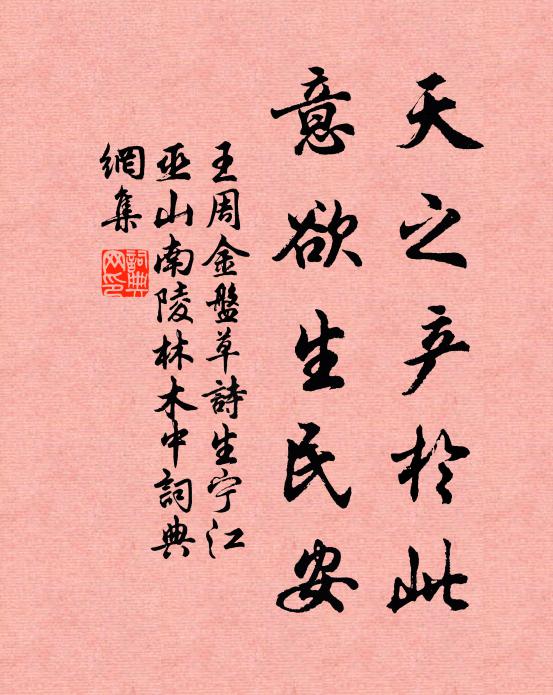 天之产於此
意欲生民安
王周金盤草詩生宁江
巫山南陵林木中詞典
網集
詞典
网印